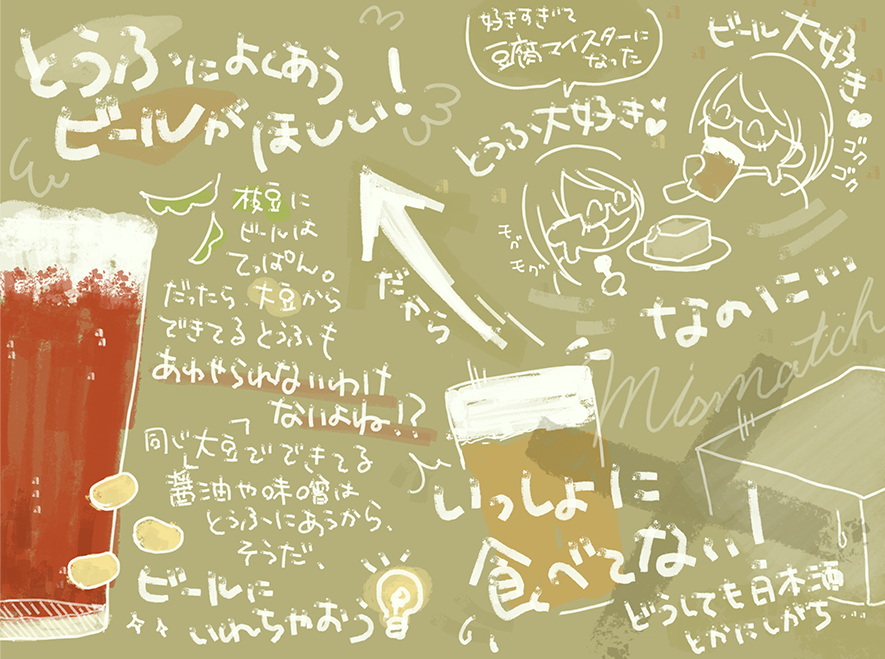 好きすぎて
豆腐マイスターに
なった
とうふ大好き
モグ
モグ
ビール大好き
ゴク
ゴク
なのに…
Mismatch
いっしょに
食べてない!
どうしても日本酒
とかにしがち…
だから
とうふによくあう
ビールがほしい!
枝豆に
ビールは
てっぱん。
だったら大豆から
できてるとうふも
あわせられないわけ
ないよね!?
同じ大豆でできてる
醤油や味噌は
とうふにあうから、
そうだ、
ビールに
いれちゃおう